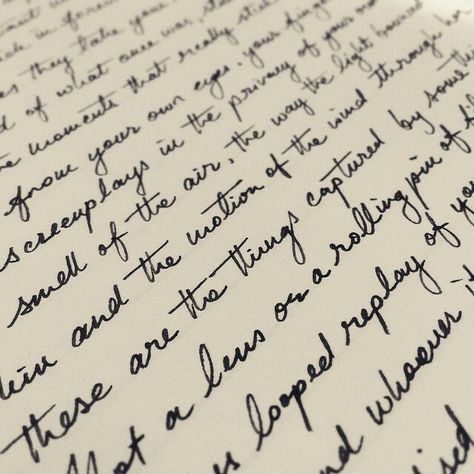 es they take your
d of what once was,
he moments that really stick
from your own eyes. your finger
screenplays in the privacy of your own
smell of the air, the way the light bounced
and the motion of the wind through her
these are the things captured by someth
not a lens or a rolling pin of f
s looped replay of you
nd whoever